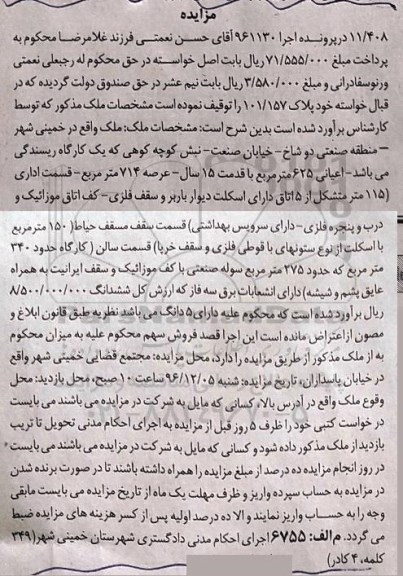 مزایده
۱۱/۴۰۸ درپرونده اجرا ۹۶۱۱۳۰ آقای حسن نعمتی فرزند غلامرضا محکوم به
پرداخت مبلغ ۷۱/۵۵۵/۰۰۰ ریال بابت اصل خواسته در حق محکوم له رجبعلی نعمتی
ورنوسفادرانی و مبلغ ۳/۵۸۰/۰۰۰ ریال بابت نیم عشر در حق صندوق دولت گردیده که در
قبال خواسته خود پلاک ۱۰۱/۱۵۷ را توقیف نموده است مشخصات ملک مذکور که توسط
کارشناس برآورد شده است بدین شرح است: مشخصات ملک: ملک واقع در خمینی شهر
– منطقه صنعتی دو شاخ – خیابان صنعت – نبش کوچه کوهی که یک کارگاه ریسندگی
می باشد – اعیانی ۶۲۵ مترمربع با قدمت ۱۵ سال – عرصه ۷۱۴ متر مربع – قسمت اداری
(۱۱۵ متر متشکل از ۵ اتاق دارای اسکلت دیوار باربر و سقف فلزی – کف اتاق موزائیک و
درب و پنجره فلزی – دارای سرویس بهداشتی) قسمت سقف مسقف حیاط( ۱۵۰ مترمربع
با اسکلت از نوع ستونهای با قوطی فلزی و سقف خرپا) قسمت سالن ( کارگاه حدود ۳۴۰
متر مربع که حدود ۲۷۵ متر مربع سوله صنعتی با کف موزائیک و سقف ایرانیت به همراه
عایق پشم و شیشه) دارای انشعابات برق سه فاز که ارزش کل ششدانگ ۸/۵۰۰/۰۰۰/۰۰۰
ریال برآورد شده است که محکوم علیه دارای ۵ دانگ می باشد نظریه طبق قانون ابلاغ و
مصون از اعتراض مانده است این اجرا قصد فروش سهم محکوم علیه به میزان محکوم
به از ملک مذکور از طریق مزایده را دارد، محل مزایده: مجتمع قضایی خمینی شهر واقع
در خیابان پاسداران، تاریخ مزایده: شنبه ۹۶/۱۲/۰۵ ساعت ۱۰ صبح، محل بازدید: محل
وقوع ملک واقع در آدرس بالا، کسانی که مایل به شرکت در مزایده می باشند می بایست
در خواست کتبی خود را ظرف ۵ روز قبل از مزایده به اجرای احکام مدنی تحویل تا ترتیب
بازدید از ملک مذکور داده شود و کسانی که مایل به شرکت در مزایده می باشند می بایست
در روز انجام مزایده ده درصد از مبلغ مزایده را همراه داشته باشند تا در صورت برنده شدن
در مزایده به حساب سپرده واریز و ظرف مهلت یک ماه از تاریخ مزایده می بایست مابقی
وجه را به حساب واریز نمایند و الا ده درصد اولیه پس از کسر هزینه های مزایده ضبط
می گردد. م الف: ۶۷۵۵ اجرای احکام مدنی دادگستری شهرستان خمینی شهر(۳۴۹
کلمه، ۴ کادر)